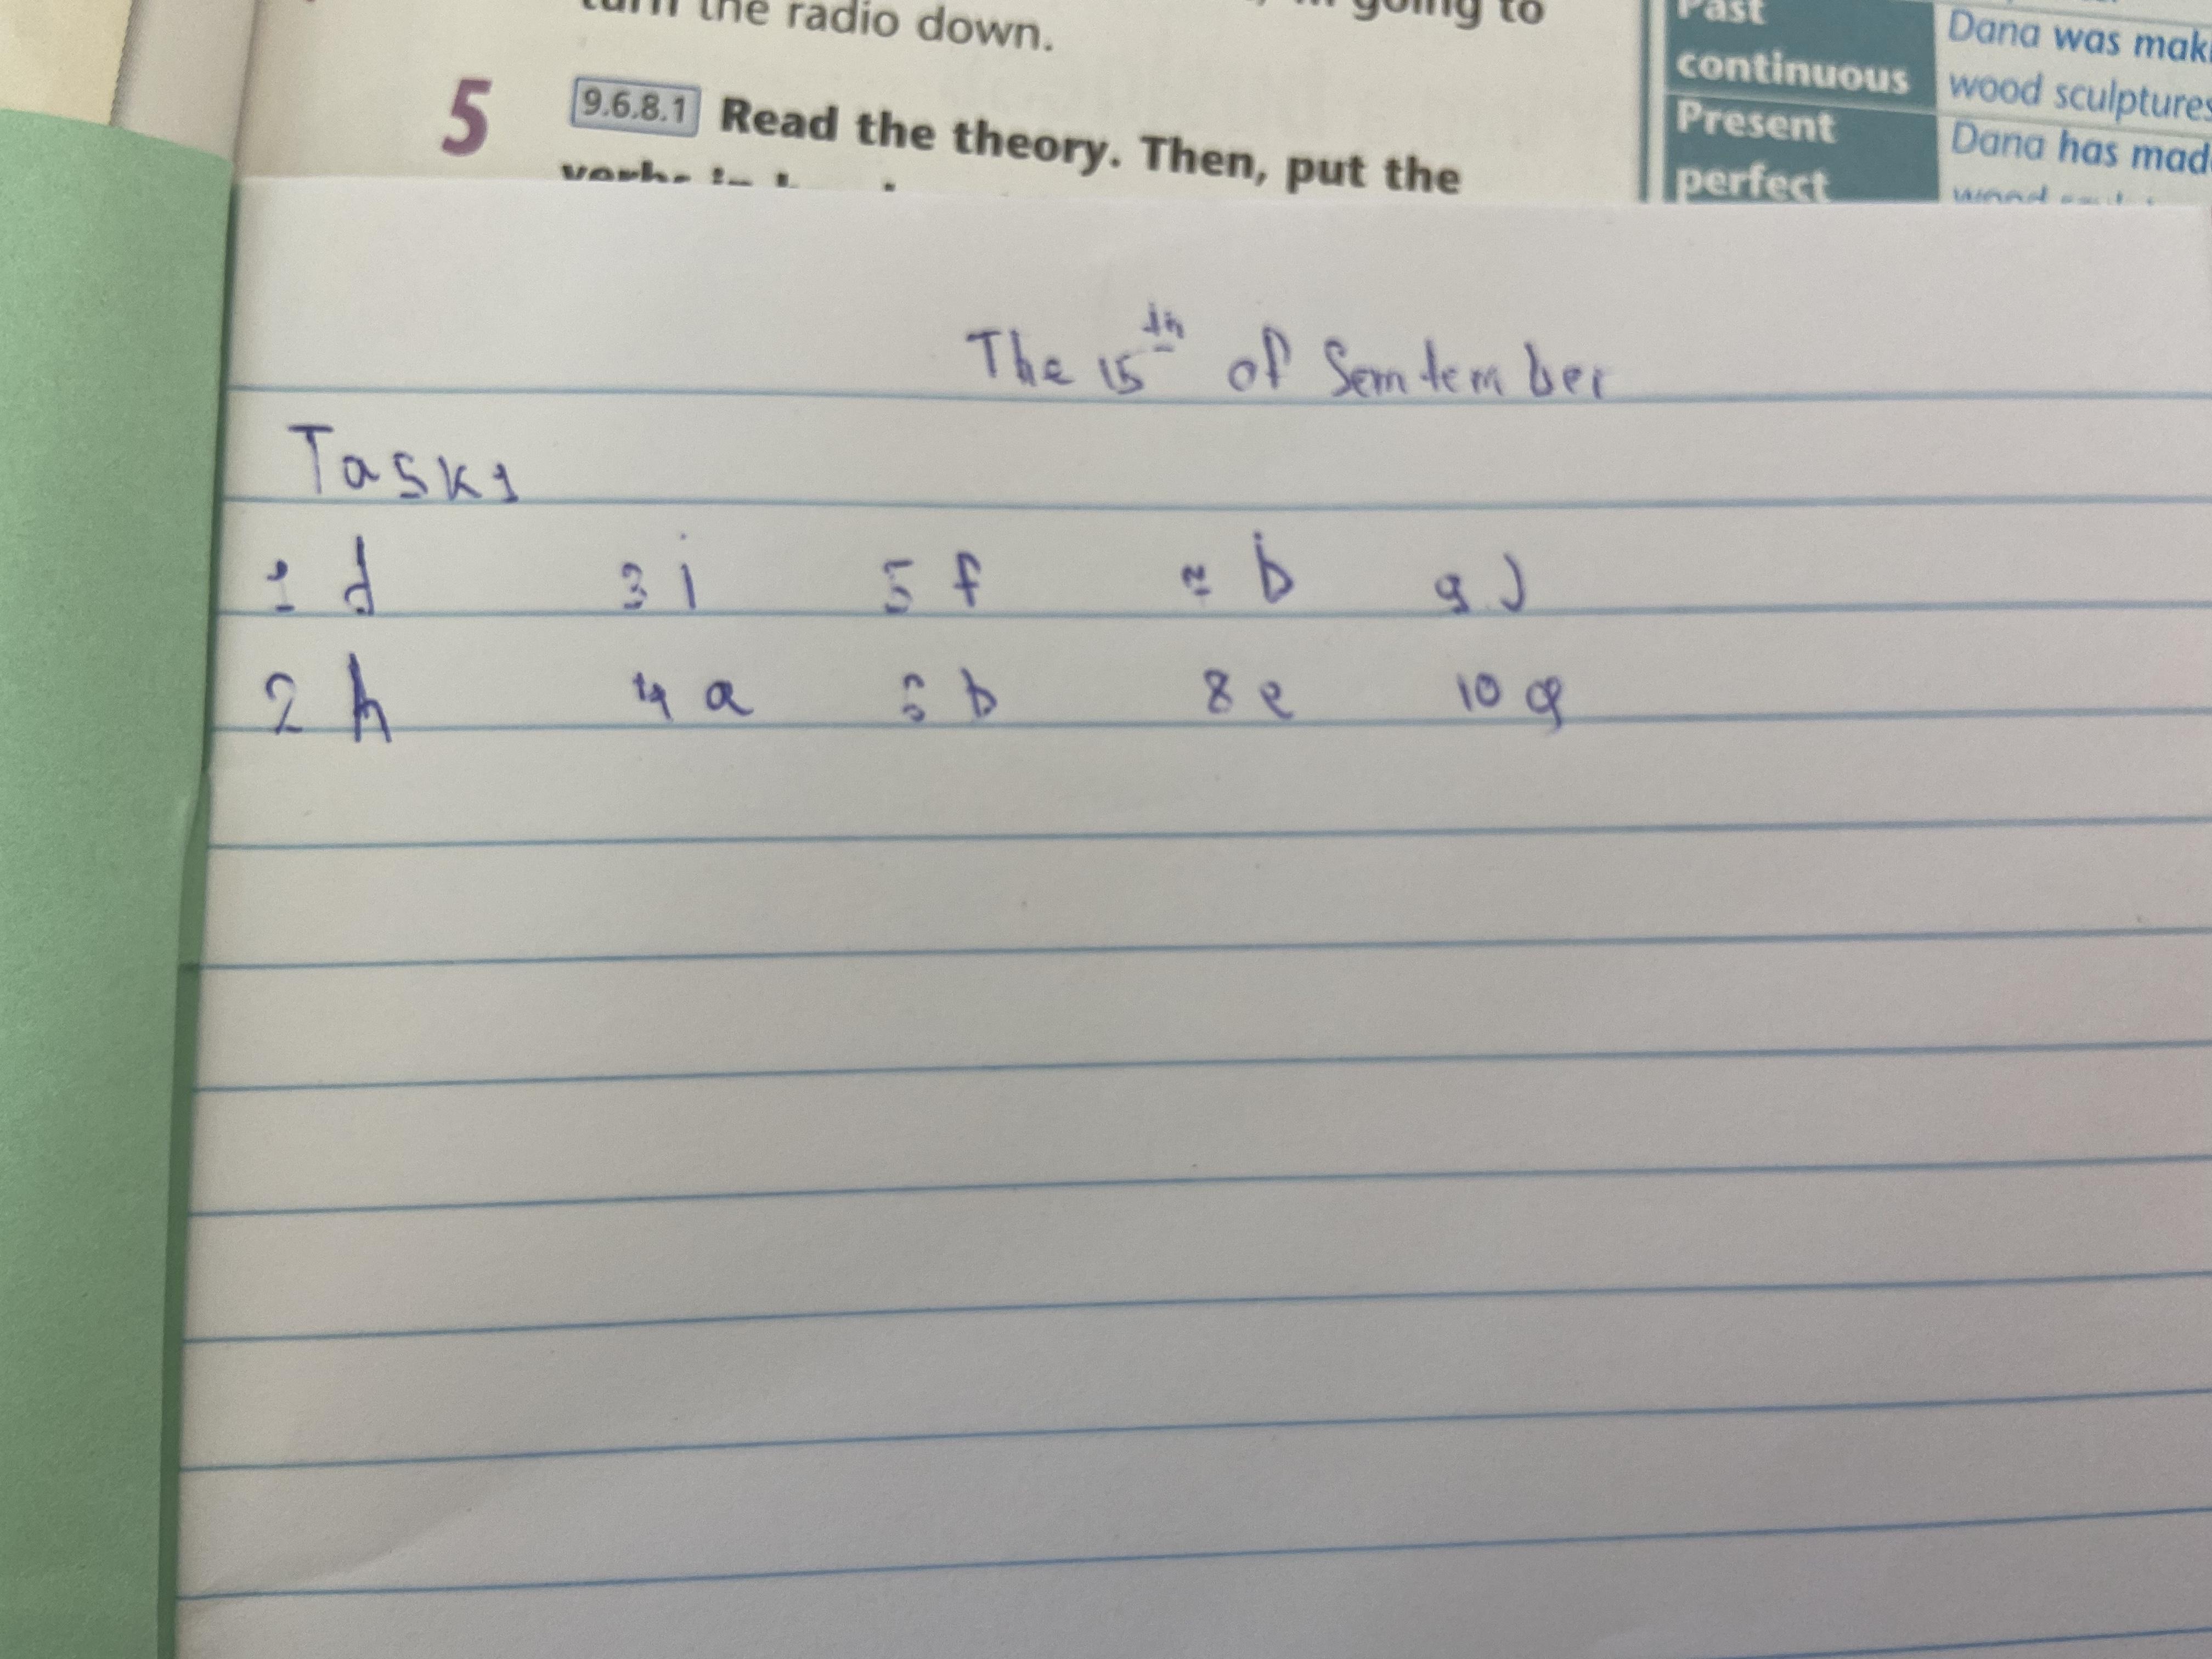 turn the radio down.
going to
5 9.6.8.1 Read the theory. Then, put the
Past continuous Dana was
wood sculptures
Present perfect Dana has
The 15th of Semtember
Task 1
1 d 3 i 5 f b 9 J
2 h 4 a 6 b 8 e 10 g